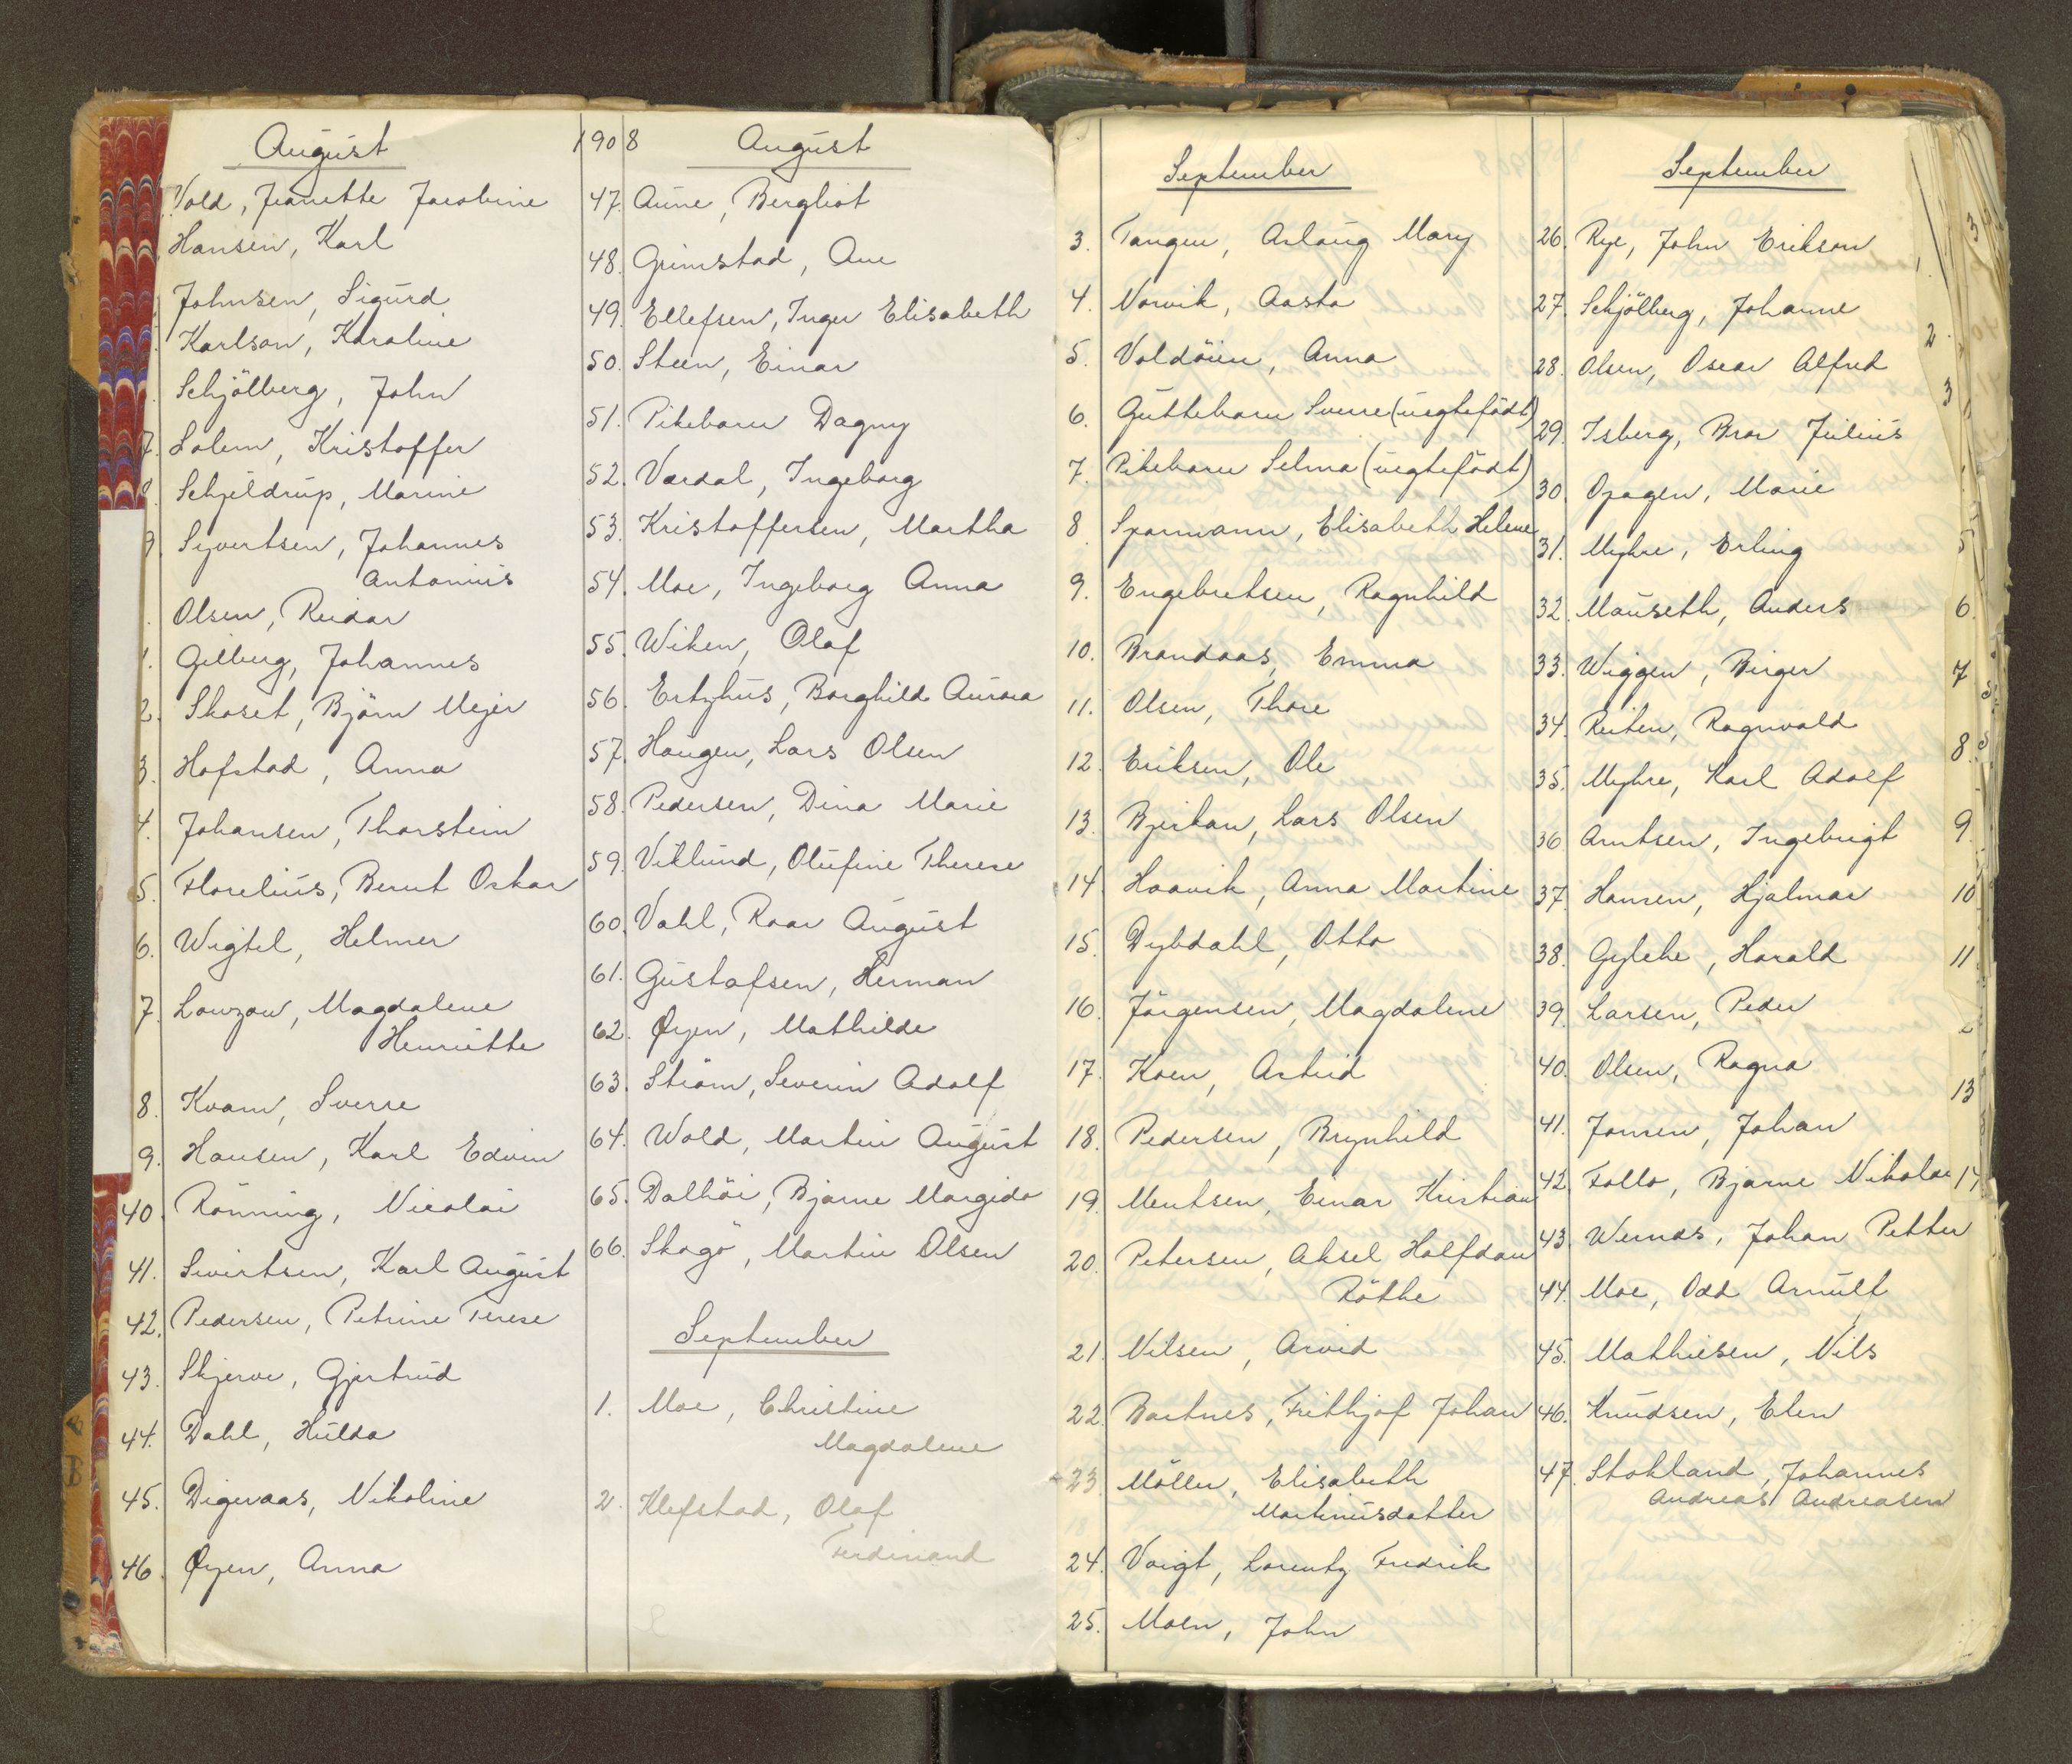 August
1908
Vold, Jeanette Jacobine
Hansen, Karl
Johnsen, Sigurd
Karlson, Karoline
Schjölberg, John
7. Solem, Kristoffer
Schjeldrup, Marine
9. Syvertsen, Johannes
Antonius
Olsen, Reidar
1. Gilberg, Johannes
2. Skaset, Björn Mejer
3. Hofstad, Anna
4. Johansen, Thorstein
5. Florelius, Bernt Oskar
6. Wigtel, Helmer
7. Lowzow, Magdalene
Henriette
8. Kvam, Sverre
9. Hansen, Karl Edvin
40. Rönning, Nicolai
41. Sivertsen, Karl August
42. Pedersen, Petrine Terese
43. Skjerve, Gjertrud
44. Dahl, Hulda
45. Digeraas, Nikoline
46. Øyen, Anna
August
47. Aune, Bergliot
48. Grimstad, Ane
49. Ellefsen, Inger Elisabeth
50. Steen, Einar
51. Pikebarn Dagny
52. Værdal, Ingeborg
53. Kristoffersen, Martha
54. Moe, Ingeborg Anna
55. Wiken, Olaf
56. Ertzhus, Borghild Aurora
57. Haugen, Lars Olsen
58. Pedersen, Dina Marie
59. Viklund, Olufine Therese
60. Vahl, Roar August
61. Gustafsen, Herman
62. Øyen, Mathilde
63. Ström, Severin Adolf
64. Wold, Martin August
65. Dalhöi, Bjarne Margido
66. Skagö, Martin Olsen
September
1. Moe, Christine
Magdalene
2. Klefstad, Olaf
Ferdinand
September
3. Tangen, Aslaug Mary
4. Norvik, Aasta
5. Voldöien, Anna
6. Guttebarn Sverre (uegtefödt)
7. Pikebarn Selma (uegtefödt)
8 Sparmann, Elisabeth Helene
9. Engebretsen, Ragnhild
10. Brandaas, Emma
11. Olsen, Thore
12. Eriksen, Ole
13. Bjerkan, Lars Olsen
14. Haavik, Anna Martine
15. Dybdahl, Otto
16. Jörgensen, Magdalene
17. Koen, Astrid
18. Pedersen, Brynhild
19. Mentsen, Einar Kristian
20. Petersen, Aksel Halfdan
Röthe
21. Nilsen, Arvid
22. Bartnes, Frithjof Johan
23 Möller, Elisabeth
Martinusdatter
24. Voigt, Lorentz Fredrik
25. Moen, John
September
26. Rye, John Erikson
27. Schjölberg, Johanne
28. Olsen, Oscar Alfred
29. Isberg, Bror Julius
30. Opagen, Marie
31. Myhre, Erling
32. Mauseth, Anders
33. Wiggen, Birger
34. Reiten, Ragnvald
35. Myhre, Karl Adolf
36 Arntsen, Ingebrigt
37. Hansen, Hjalmar
38. Gylche, Harald
39. Larsen, Peder
40. Olsen, Ragna
41. Jonsen, Johan
42. Follo, Bjarne Nikolai
43. Wernås, Johan Petter
44. Moe, Odd Arnulf
45. Mathiesen, Nils
46. Knudsen, Elen
47. Stokland, Johannes
Andreas Andreasen
1.
2.
3
5
6.
7
8.
9.
10
11
13
14